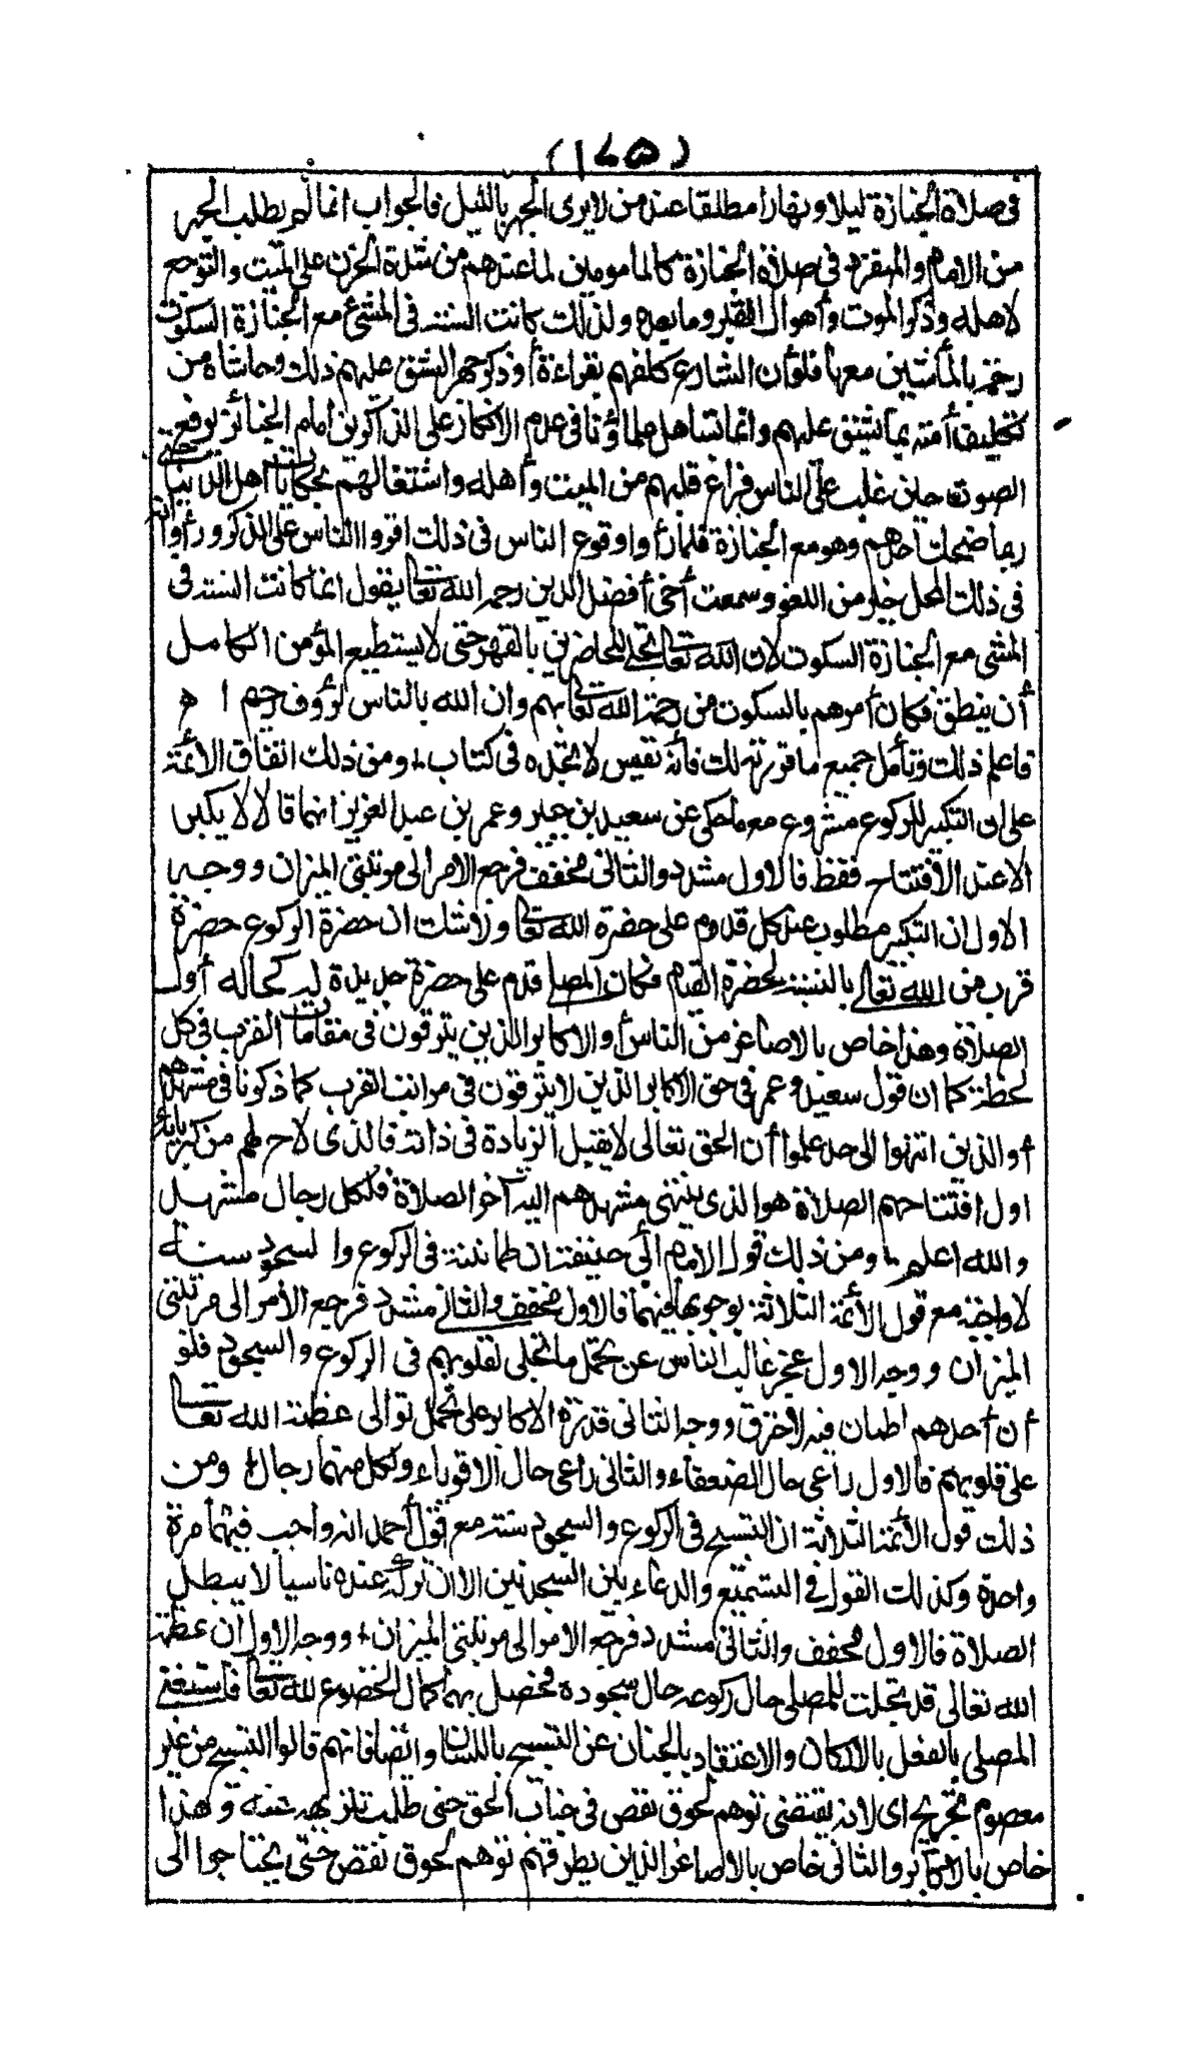 (١٧٥)
فى صلاة الجنازة ليلا ونهارا مطلقا عند من لا يرى الجهر بالليل فالجواب انما لم يطلب الجهر
من الامام والمنفرد فى صلاة الجنازة كالمأمومين لما عندهم من شدة الحزن على الميت والتوجع
لاهله وذكر الموت وأهوال القبر وما بعده ولذلك كانت السنة فى المشى مع الجنازة السكوت
رحمة بالماشين معها فلو أن الشارع كلفهم بقراءة أو ذكر جهرا لشق عليهم ذلك وحاشاه من
تكليف أمته بما يشق عليهم وانما تساهل علماؤنا فى عدم الانكار على الذاكرين امام الجنائز برفع
الصوت حين غلب على الناس فراغ قلبهم من الميت وأهله واشتغالهم بحكايات اهل الدنيا حتى
ربما ضحك أحدهم وهو مع الجنازة فلما رأوا وقوع الناس فى ذلك اقروا الناس على الذكر ورأوا انه
فى ذلك المحل خير من اللغو وسمعت أخى أفضل الدين رحمه الله تعالى يقول انما كانت السنة فى
المشى مع الجنازة السكوت لان الله تعالى تجلى للحاضرين بالقهر حتى لا يستطيع المؤمن الكامل
أن ينطق فكان أمرهم بالسكوت من رحمة الله تعالى بهم وان الله بالناس لرؤوف رحيم اه
فاعلم ذلك وتأمل جميع ما قررته لك فانه نفيس لا تجده فى كتاب ومن ذلك اتفاق الأئمة
على ان التكبير للركوع مشروع مع ما حكى عن سعيد بن جبير وعمر بن عبد العزيز انهما قالا لا يكبر
الا عند الافتتاح فقط فالاول مشدد والثانى مخفف فرجع الامر الى مرتبتى الميزان ووجه
الاول ان التكبير مطلوب عند كل قدوم على حضرة الله تعالى ولا شك ان حضرة الركوع حضرة
قرب من الله تعالى بالنسبة لحضرة القيام فكان المصلى قدم على حضرة جديدة له كحاله أول
الصلاة وهذا خاص بالاصاغر من الناس أو الاكابر الذين يترقون فى مقامات القرب فى كل
لحظة كما ان قول سعيد وعمر فى حق الاكابر الذين لا يترقون فى مراتب القرب كما ذكرنا فى مشهدهم
أو الذين انتهوا الى حد علموا أن الحق تعالى لا يقبل الزيادة فى ذاته فالذى لاح لهم من كبريائه
اول افتتاحهم الصلاة هو الذى ينتهى مشهدهم اليه آخر الصلاة فلكل رجال مشهد
والله اعلم ومن ذلك قول الامام أبى حنيفة ان طمأنينة فى الركوع والسجود سنة
لا واجبة مع قول الأئمة الثلاثة بوجوبها فيهما فالاول مخفف والثانى مشدد فرجع الأمر الى مرتبتى
الميزان ووجه الاول عجز غالب الناس عن تحمل ما تجلى لقلوبهم فى الركوع والسجود فلو
أن أحدهم اطمأن فيه لاحترق ووجه الثانى قدرة الاكابر على تحمل توالى عظمة الله تعالى
على قلوبهم فالاول راعى حال الضعفاء والثانى راعى حال الاقوياء ولكل منهما رجال ومن
ذلك قول الأئمة الثلاثة ان التسبيح فى الركوع والسجود سنة مع قول أحمد انه واجب فيهما مرة
واحدة وكذلك القول فى التسميع والدعاء بين السجدتين الا ان تركه عنده ناسيا لا يبطل
الصلاة فالاول مخفف والثانى مشدد فرجع الامر الى مرتبتى الميزان ووجه الاول ان عظمة
الله تعالى قد تجلت للمصلى حال ركوعه حال سجوده فحصل بهما كمال الخضوع لله تعالى فاستغنى
المصلى بالفعل بالاركان والاعتقاد بالجنان عن التسبيح باللسان وايضا فانهم قالوا التسبيح من غير
معصوم تجريح اى لانه يقتضى توهم لحوق نقص فى جناب الحق حتى طلب تنزيهه عنه وهذا
خاص بالاكابر والثانى خاص بالاصاغر الذين يطرقهم توهم لحوق نقص حتى يحتاجوا الى